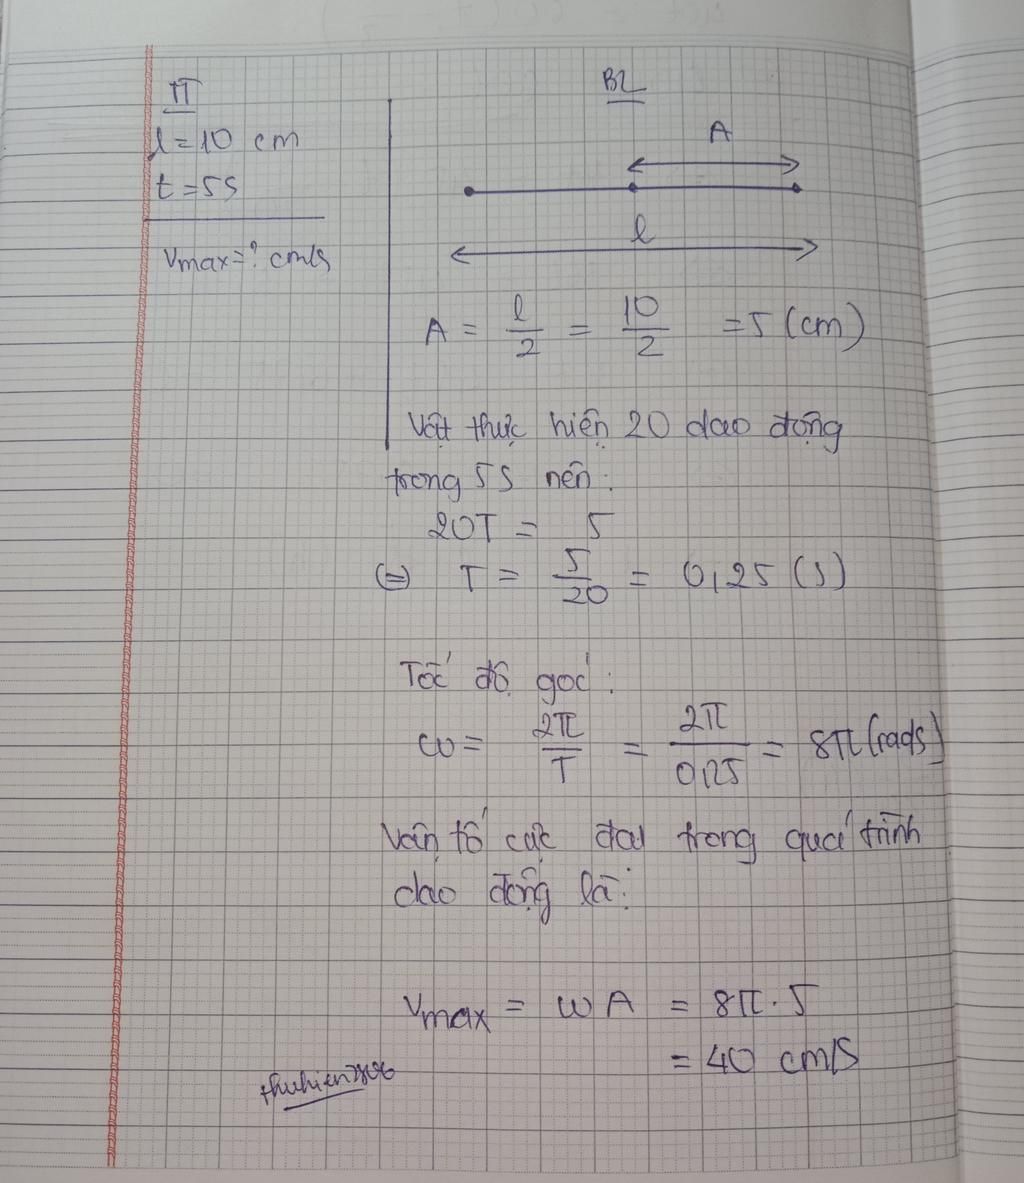 TT
l = 10 cm
t = 5s
Vmax = ? cm/s
BL
A
l
A = l/2 = 10/2 = 5 (cm)
Vật thực hiện 20 dao động
trong 5s nên:
20T = 5
(=) T = 5/20 = 0,25 (s)
Tốc độ góc:
ω = 2π/T = 2π/0,25 = 8π (rads)
Vận tố cực đai trong quá trình
dao động là:
Vmax = ωA = 8π . 5
= 40 cm/s